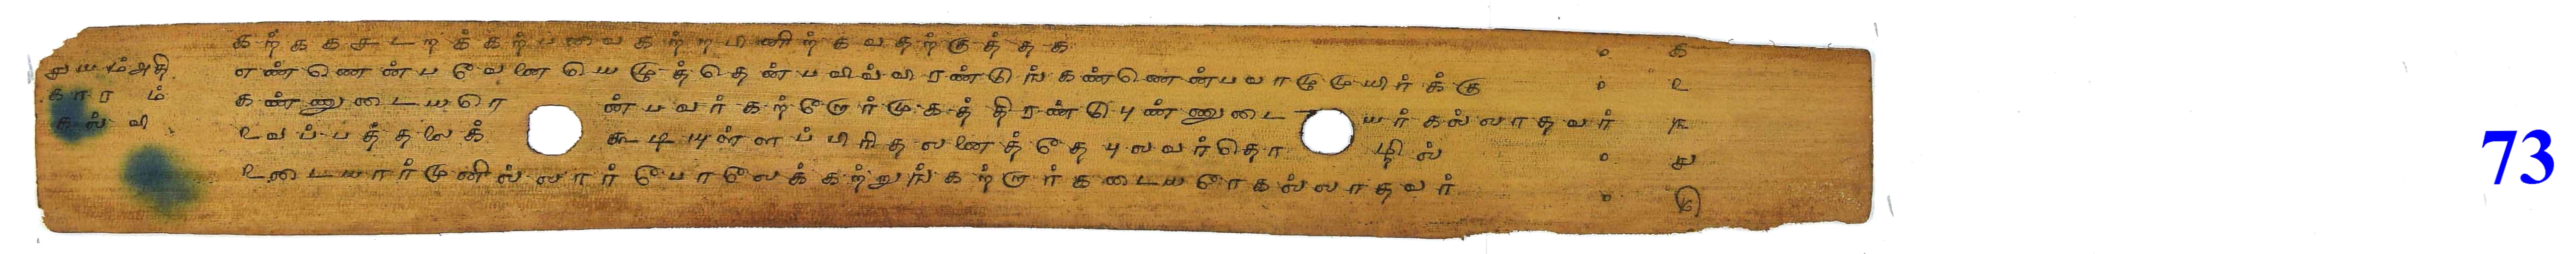 கற்ககசடறக்கற்பவைகற்றபினிற்கவதற்குத்தக ௦ ௧
௪௰ம்அதி எண்ணென்பவேனையெழுத்தென்பவிவ்விரண்டுங்கண்ணென்பவாழுமுயிர்க்கு ௦ ௨
காரம் கண்ணுடையரென்பவர்கற்றோர்முகத்திரண்டுபுண்ணுடையர்கல்லாதவர் ௩
கல்வி உவப்பத்தலைக்கூடியுள்ளப்பிரிதலனைத்தேபுலவர்தொழில் ௦ ௪
உடையார்முனில்லார்போலேக்கற்றுங்கற்றார்கடையரேகல்லாதவர் ௦ ௫
73